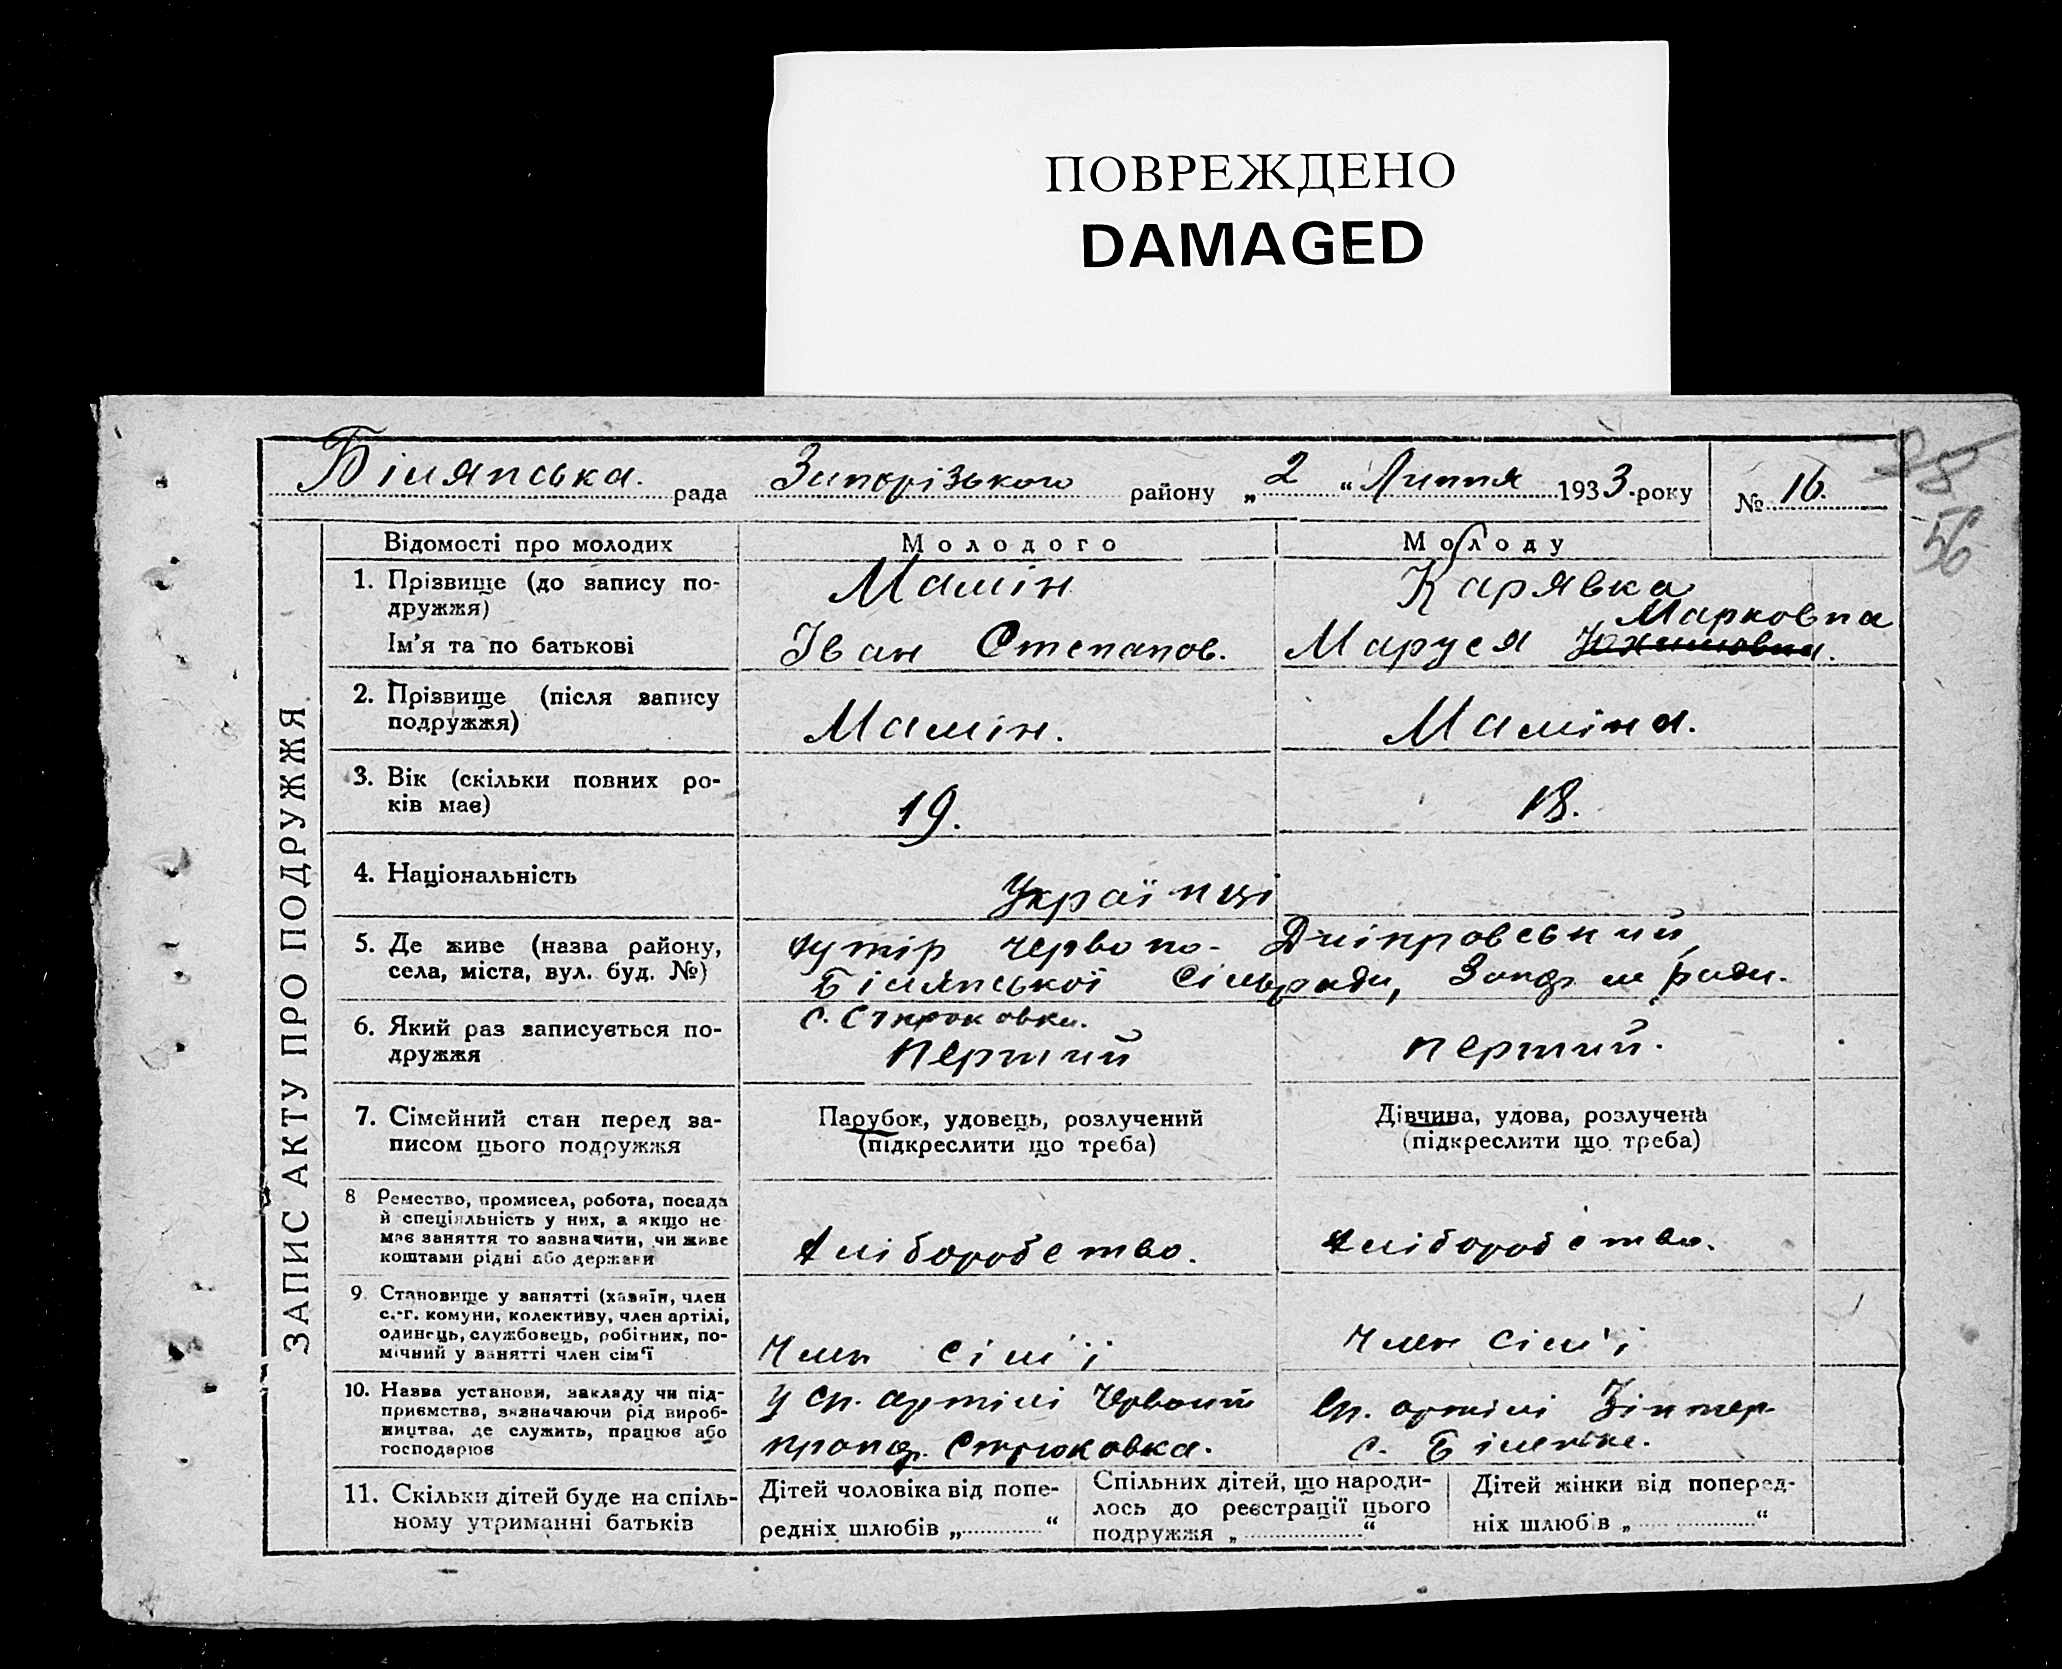 ПОВРЕЖДЕНО
DAMAGED
Білянська рада Запорізького району „2“ Липня 1933 року № 16.
56
ЗАПИС АКТУ ПРО ПОДРУЖЖЯ
Відомості про молодих Молодого Молоду
1. Прізвище (до запису по-
дружжя) Мамін Карявка
Марковна
Ім'я та по батькові Іван Степанов. Маруся
2. Прізвище (після запису
подружжя) Мамін. Маміна.
3. Вік (скільки повних ро-
ків має) 19. 18.
4. Національність Українці
5. Де живе (назва району,
села, міста, вул. буд. №)
хутір Червоно-Дніпровський,
Білянської Сільради,
6. Який раз записується по-
дружжя
с. Стрюковка.
Перший Перший.
7. Сімейний стан перед за-
писом цього подружжя
Парубок, удовець, розлучений
(підкреслити що треба)
Дівчина, удова, розлучена
(підкреслити що треба)
8 Ремество, промисел, робота, посада
й спеціяльність у них, а якщо не
має заняття то зазначити, чи живе
коштами рідні або держави
хліборобство. хліборобство.
9. Становище у занятті (хазяїн, член
с.-г. комуни, колективу, член артілі,
одинець, службовець, робітник, по-
мічний у занятті член сім'ї
Член сім'ї Член сім'ї
10. Назва установи, закладу чи під-
приємства, зазначаючи рід вироб-
ництва, де служить, працює або
господарює
У сп. артілі Червоний
прапор. Стрюковка.
Сп. артілі Інтер.
с. Біленьке.
11. Скільки дітей буде на спіль-
ному утриманні батьків
Дітей чоловіка від попе-
редніх шлюбів „ “
Спільних дітей, що народи-
лось до реєстрації цього
подружжя „ “
Дітей жінки від поперед-
ніх шлюбів „ “